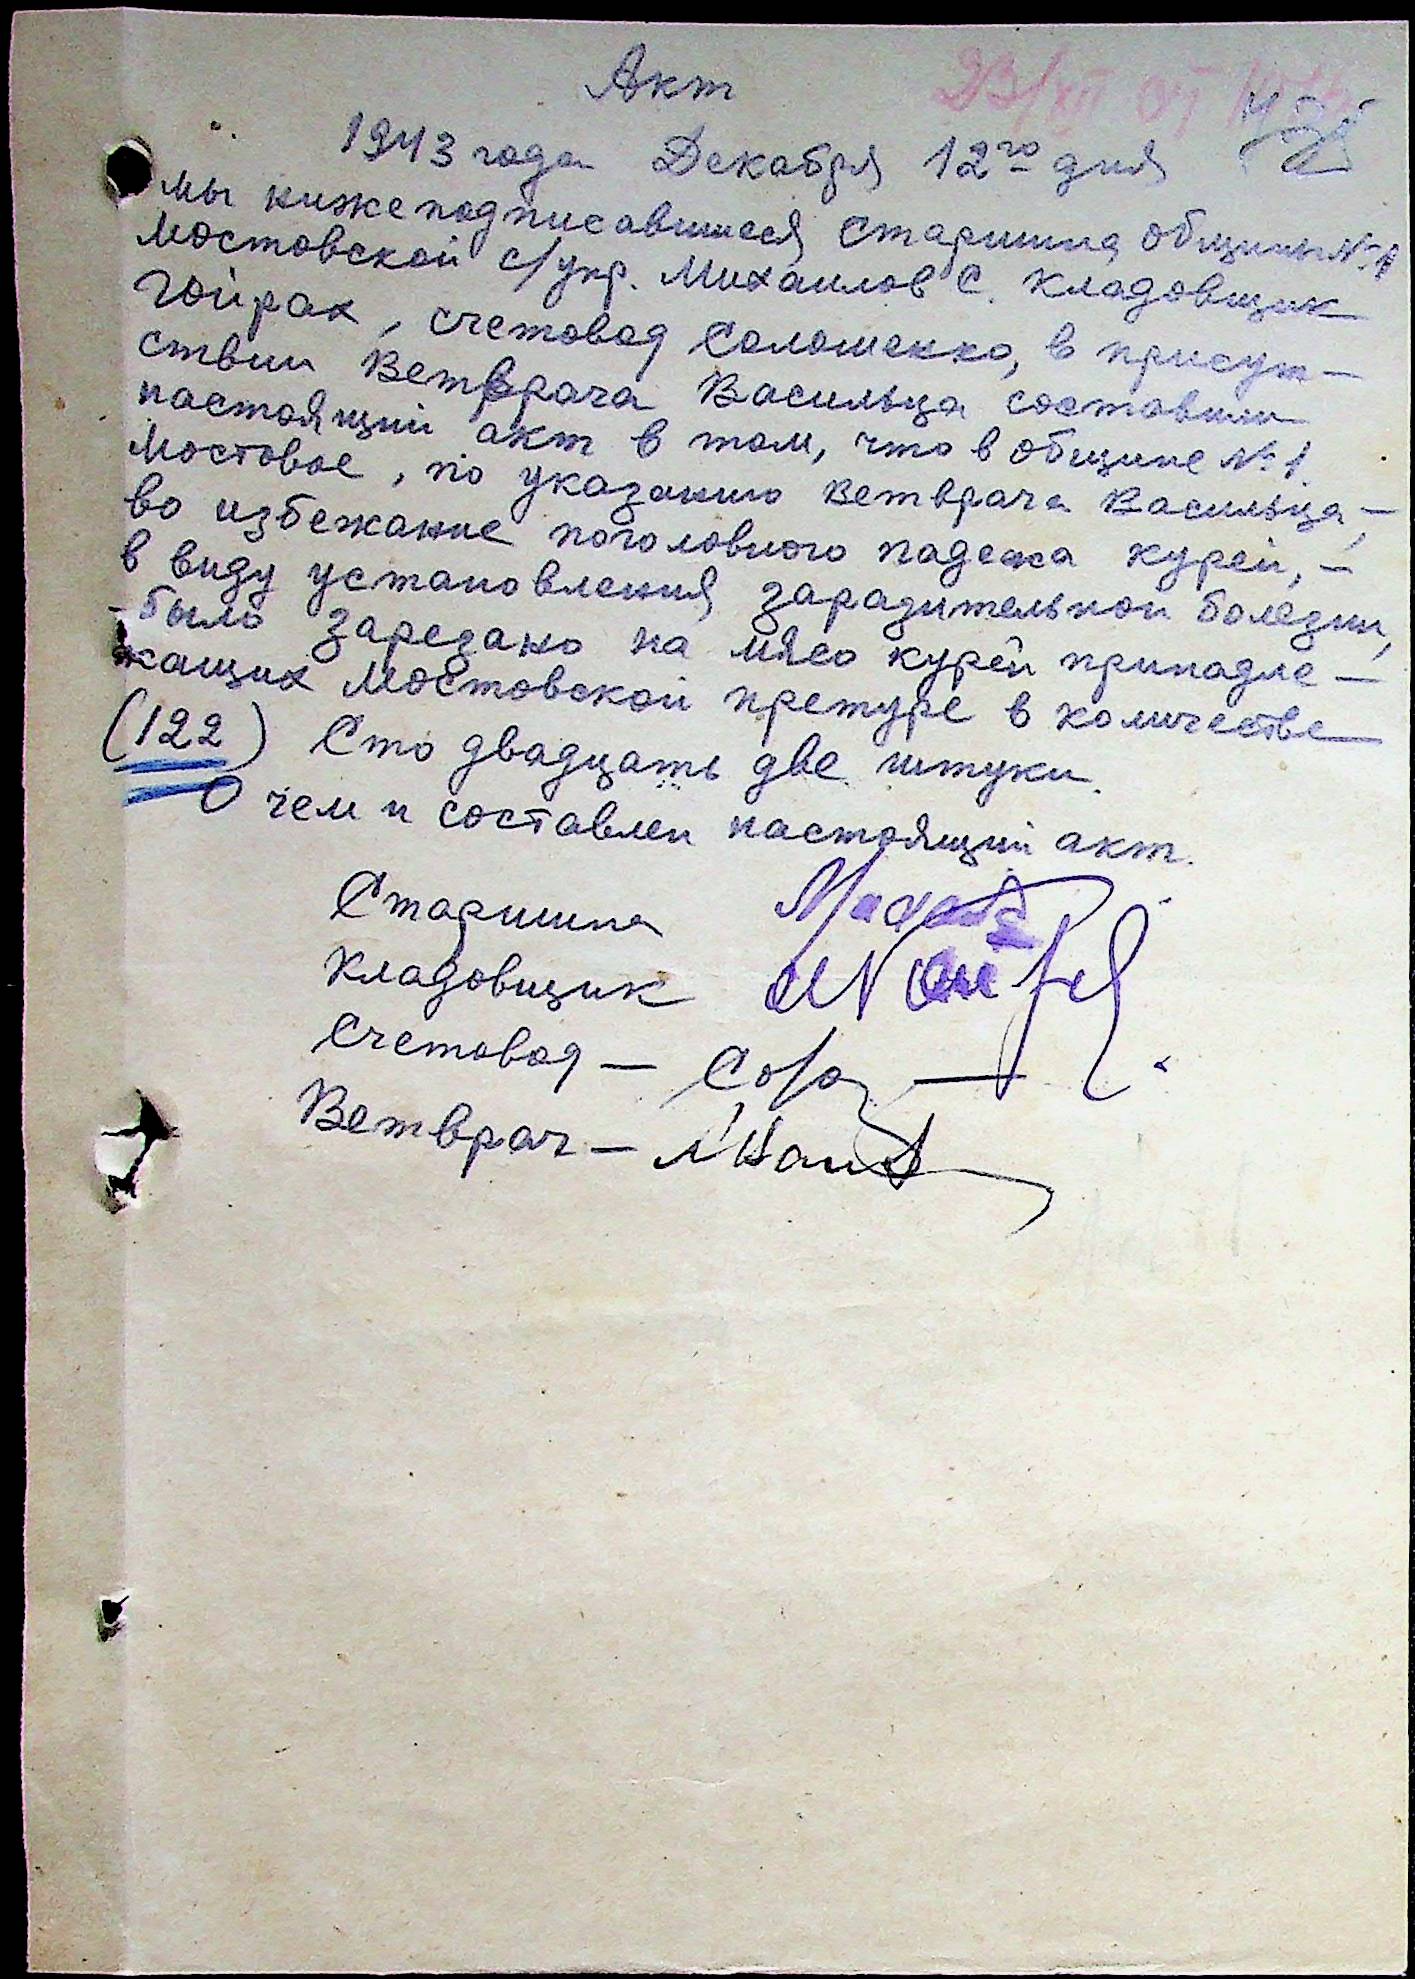 Акт
1943 года Декабря 12го дня
мы нижеподписавшиеся Старшина общины №1
Мостовской с/упр. Михаилов С. Кладовщик
Гойрах, счетовод Соломенко, в присут-
ствии Ветврача Васильца составили
настоящий акт в том, что в общине №1
Мостовое, по указанию Ветврача Васильца,-
во избежание поголовного падежа курей,-
в виду установления заразительной болезни,
-было зарезано на мясо курей принадле-
жащих Мостовской претуре в количестве
(122) Сто двадцать две штуки.
О чем и составлен настоящий акт.
Старшина
Кладовщик
Счетовод -
Ветврач -